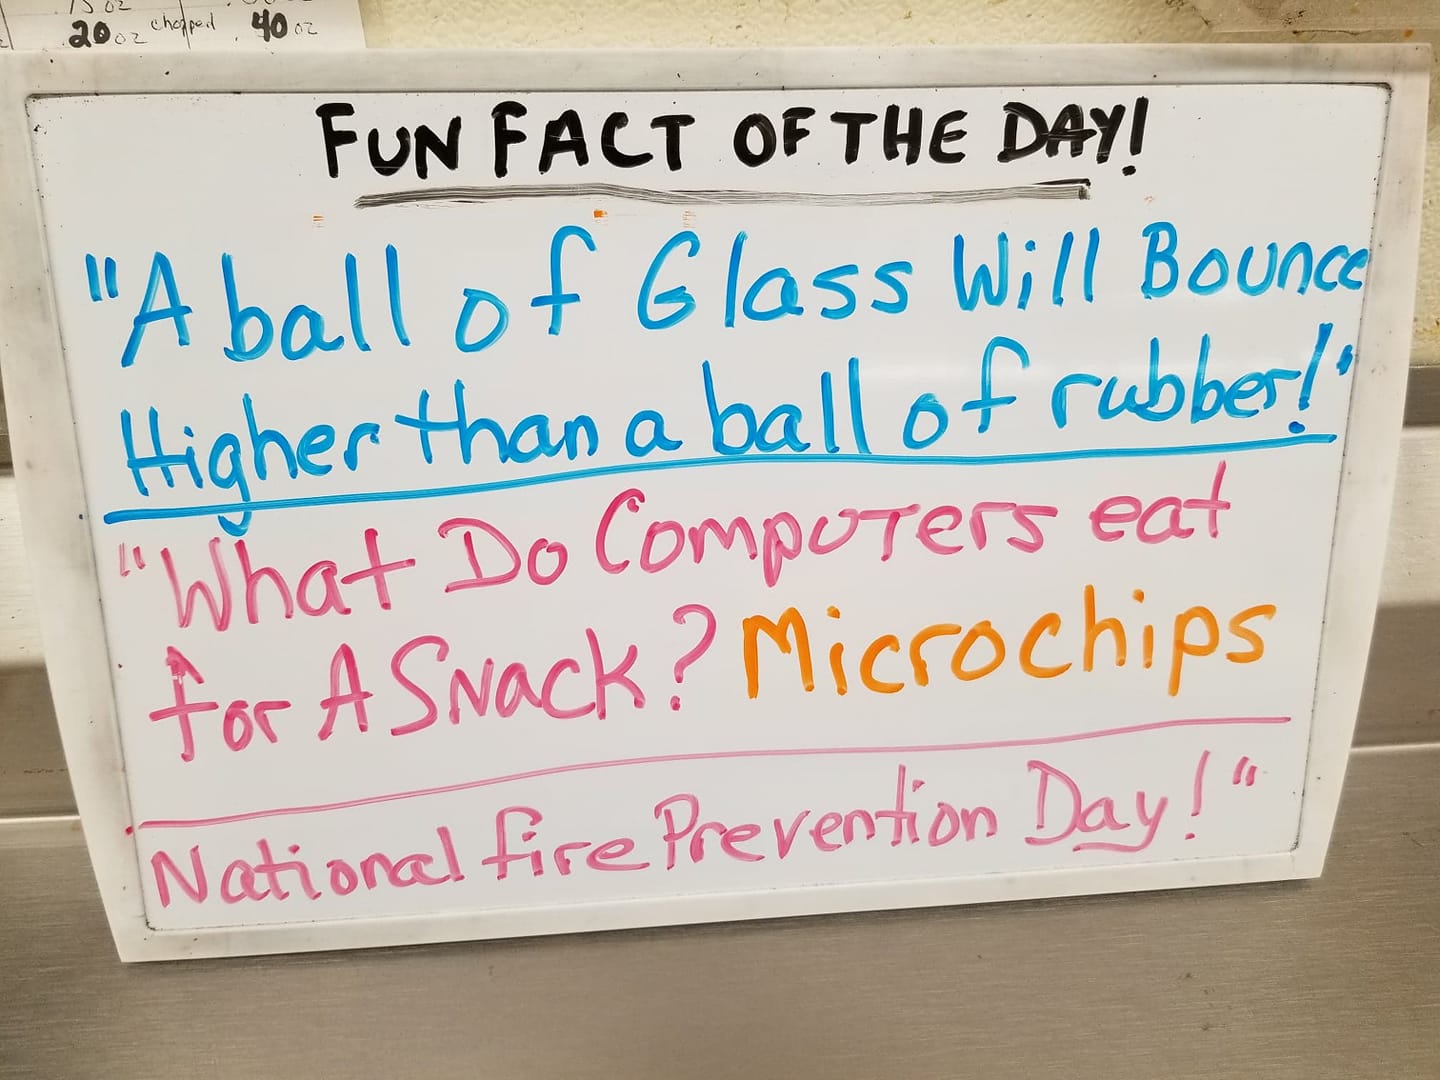 20 oz chopped 40 oz
FUN FACT OF THE DAY!
"A ball of Glass Will Bounce
Higher than a ball of rubber!"
"What Do Computers eat
for A Snack? Microchips
National fire Prevention Day!"